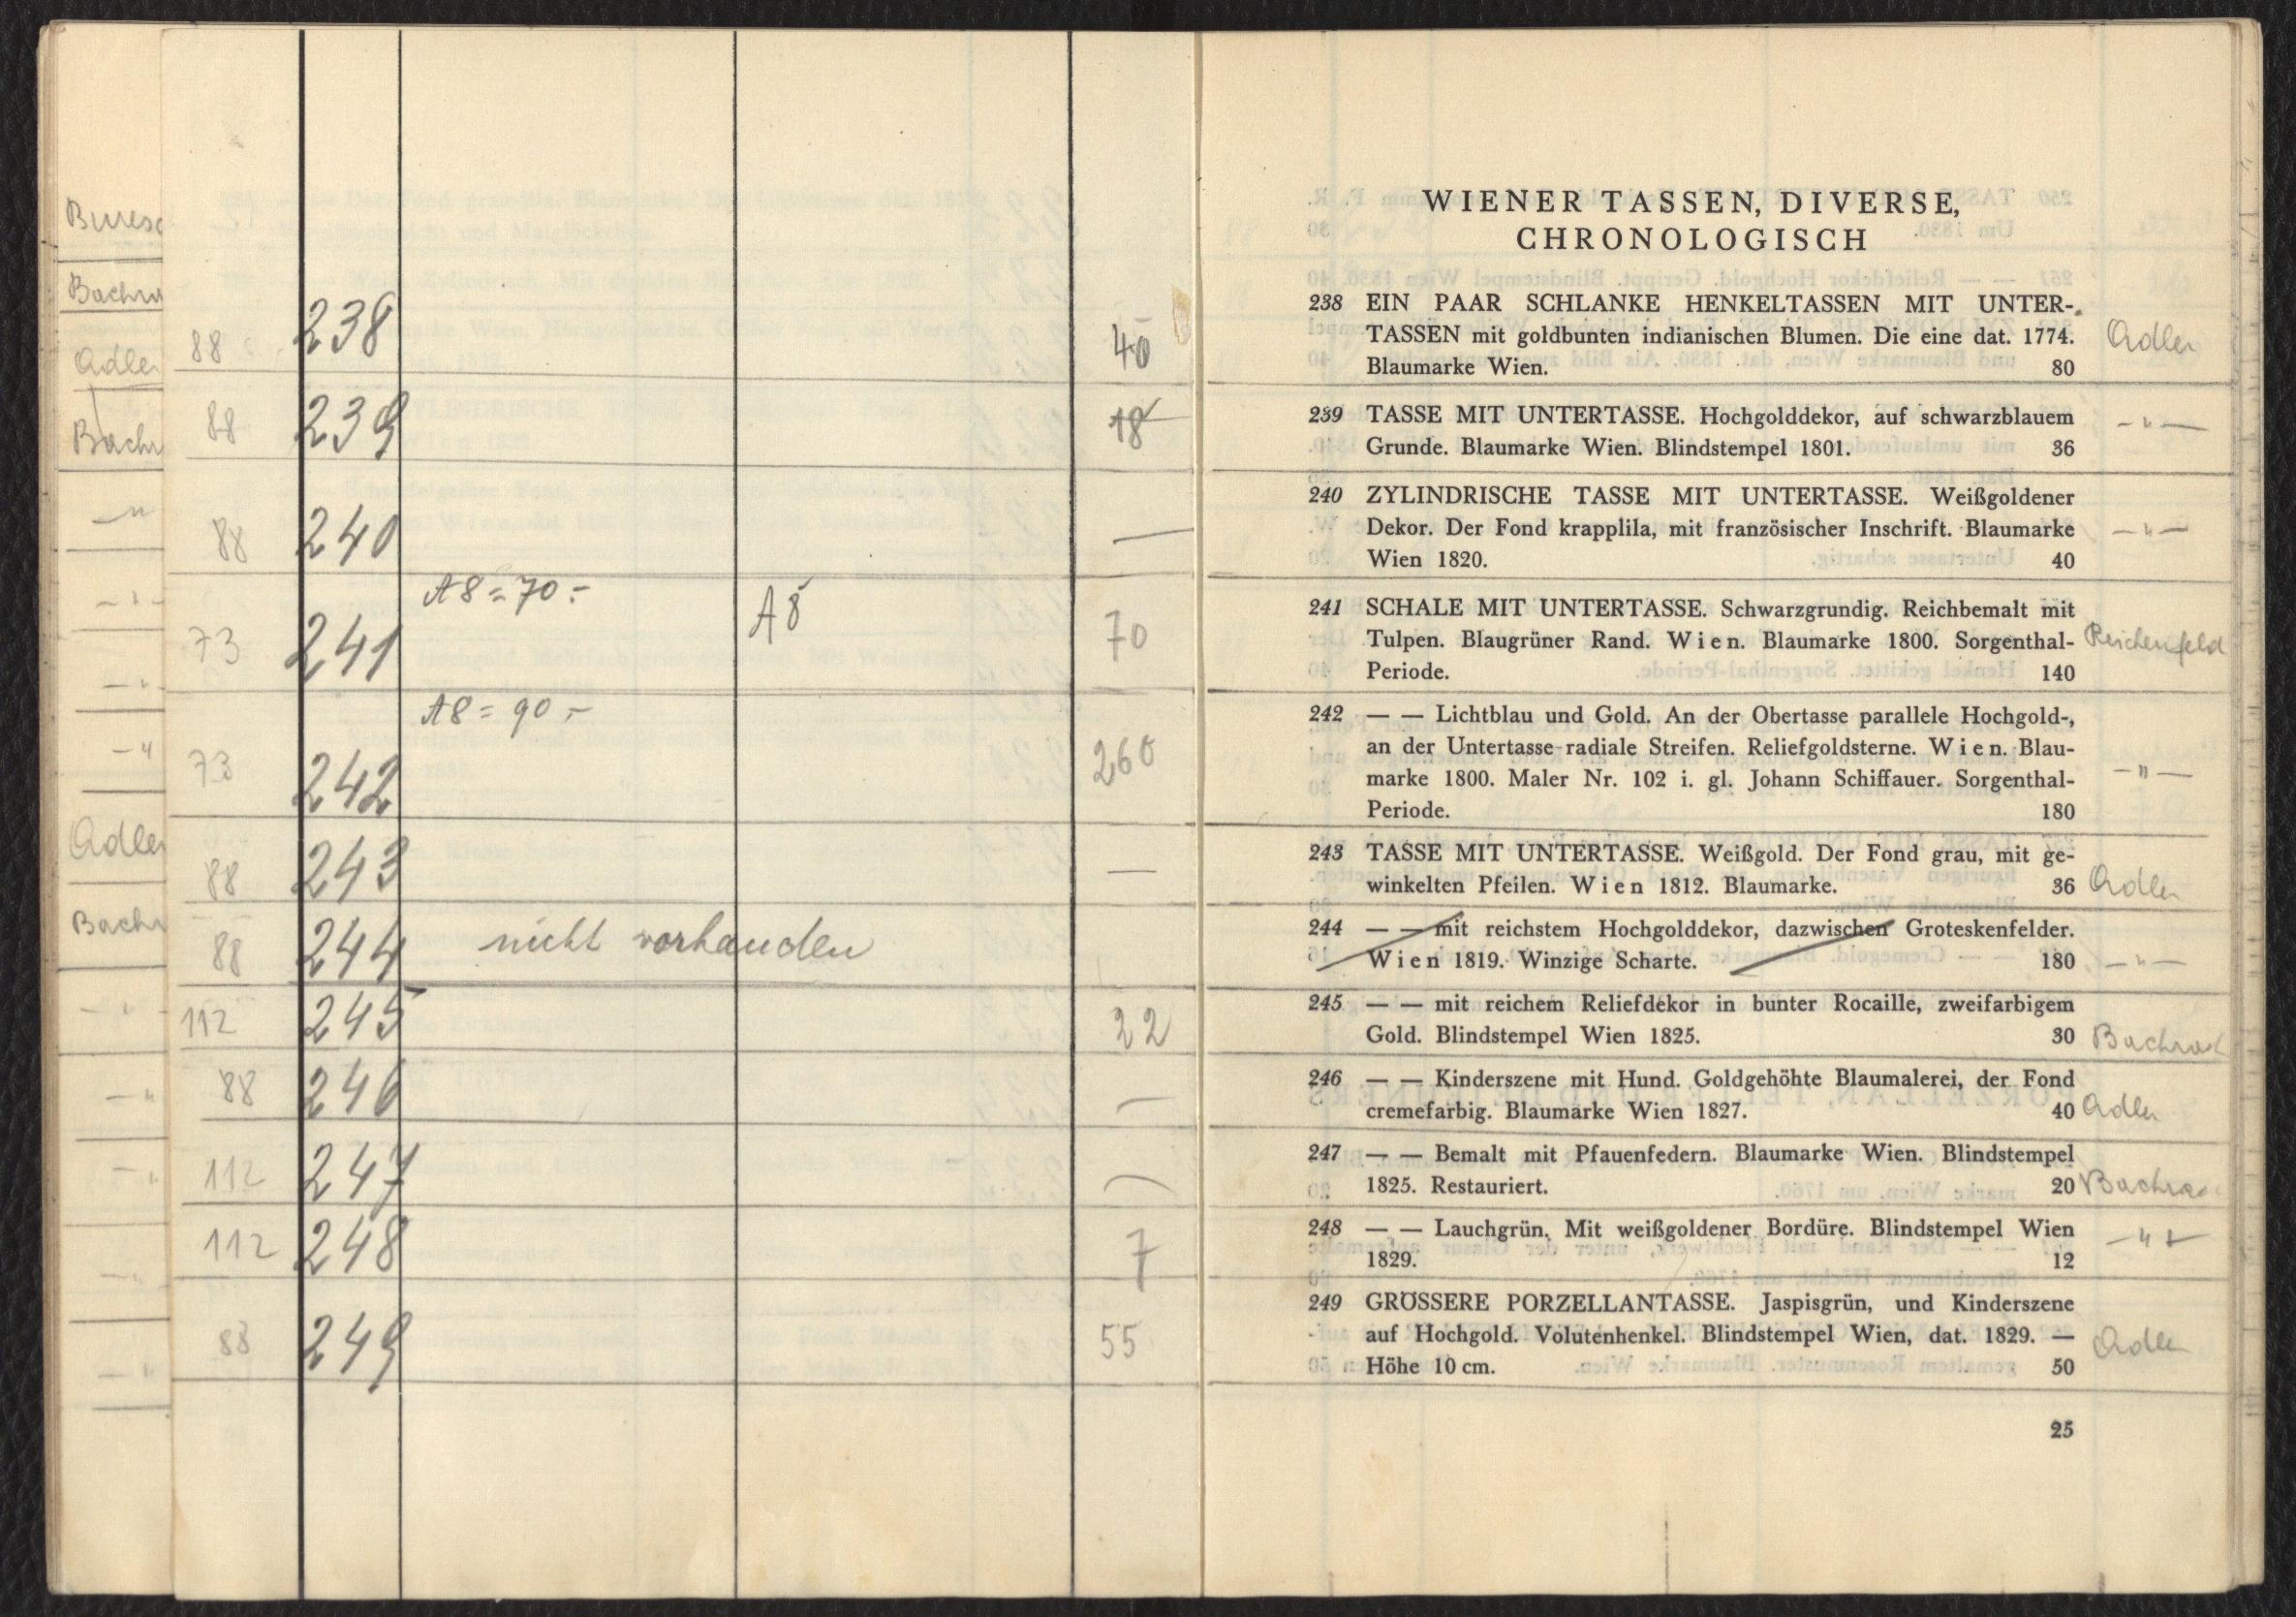 Adler
88 238 40
88 239 18
88 240 —
A8 = 70.-
73 241 A8 70
A8 = 90.-
73 242 260
88 243 —
88 244 nicht vorhanden
112 245 22
88 246 —
112 247 —
112 248 7
88 249 55
WIENER TASSEN, DIVERSE,
CHRONOLOGISCH
238 EIN PAAR SCHLANKE HENKELTASSEN MIT UNTER-
TASSEN mit goldbunten indianischen Blumen. Die eine dat. 1774. Adler
Blaumarke Wien. 80
239 TASSE MIT UNTERTASSE. Hochgolddekor, auf schwarzblauem
Grunde. Blaumarke Wien. Blindstempel 1801. 36 —"—
240 ZYLINDRISCHE TASSE MIT UNTERTASSE. Weißgoldener
Dekor. Der Fond krapplila, mit französischer Inschrift. Blaumarke —"—
Wien 1820. 40
241 SCHALE MIT UNTERTASSE. Schwarzgrundig. Reichbemalt mit
Tulpen. Blaugrüner Rand. Wien. Blaumarke 1800. Sorgenthal- Reichenfeld
Periode. 140
242 — — Lichtblau und Gold. An der Obertasse parallele Hochgold-,
an der Untertasse radiale Streifen. Reliefgoldsterne. Wien. Blau-
marke 1800. Maler Nr. 102 i. gl. Johann Schiffauer. Sorgenthal- —"—
Periode. 180
243 TASSE MIT UNTERTASSE. Weißgold. Der Fond grau, mit ge-
winkelten Pfeilen. Wien 1812. Blaumarke. 36 Adler
244 — — mit reichstem Hochgolddekor, dazwischen Groteskenfelder.
Wien 1819. Winzige Scharte. 180 —"—
245 — — mit reichem Reliefdekor in bunter Rocaille, zweifarbigem
Gold. Blindstempel Wien 1825. 30 Bachrach
246 — — Kinderszene mit Hund. Goldgehöhte Blaumalerei, der Fond
cremefarbig. Blaumarke Wien 1827. 40 Adler
247 — — Bemalt mit Pfauenfedern. Blaumarke Wien. Blindstempel
1825. Restauriert. 20 Bachra
248 — — Lauchgrün. Mit weißgoldener Bordüre. Blindstempel Wien —"—
1829. 12
249 GRÖSSERE PORZELLANTASSE. Jaspisgrün, und Kinderszene
auf Hochgold. Volutenhenkel. Blindstempel Wien, dat. 1829. — Adler
Höhe 10 cm. 50
25